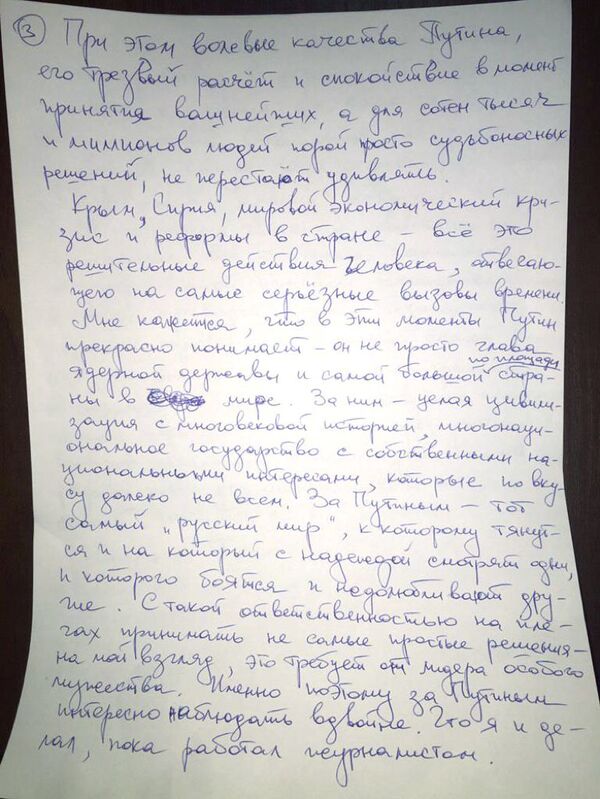 3 При этом волевые качества Путина,
его трезвый расчёт и спокойствие в момент
принятия важнейших, а для сотен тысяч
и миллионов людей порой просто судьбоносных
решений, не перестают удивлять.
Крым, Сирия, мировой экономический кри-
зис и реформы в стране – всё это
решительные действия человека, отвечаю-
щего на самые серьёзные вызовы времени.
Мне кажется, что в эти моменты Путин
прекрасно понимает – он не просто глава
ядерной державы и самой большой по площади стра-
ны в мире. За ним – целая цивили-
зация с многовековой историей, многонаци-
ональное государство с собственными на-
циональными интересами, которые по вку-
су далеко не всем. За Путиным – тот
самый „русский мир", к которому тянут-
ся и на который с надеждой смотрят одни,
и которого боятся и недолюбливают дру-
гие. С такой ответственностью на пле-
чах принимать не самые простые решения –
на мой взгляд, это требует от лидера особого
мужества. Именно поэтому за Путиным
интересно наблюдать вдвойне. Что я и де-
лал, пока работал журналистом.